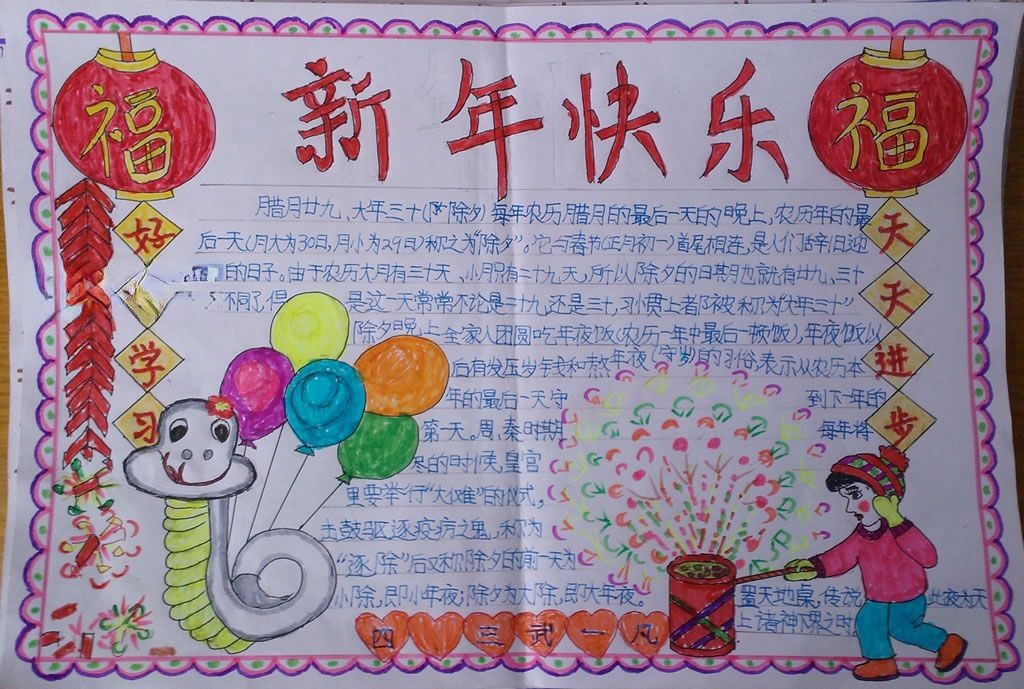 福
新年快乐
福
腊月廿九、大年三十(除夕)每年农历腊月的最后一天的晚上,农历年的最
后一天(月大为30日,月小为29日)称之为"除夕"。它与春节(正月初一)首尾相连,是人们辞旧迎
的日子。由于农历大月有三十天、小月只有二十九天,所以除夕的日期也就有廿九、三十
不同了,但 是这一天常常不论是二十九,还是三十,习惯上都被称为"大年三十"
除夕晚上全家人团圆吃年夜饭(农历一年中最后一顿饭),年夜饭以
后有发压岁钱和熬年夜(守岁)的习俗,表示从农历本
年的最后一天守 到下一年的
第一天。周、秦时期 每年将
的时候,皇宫
里要举行"大傩"的仪式,
击鼓驱逐疫疠之鬼,称为
"逐除"后又称除夕的前一天为
小除,即小年夜;除夕为大除,即大年夜。
置天地桌,传说 此夜为天
上诸神 之时
好
学
习
天
天
进
步
四 三 武一凡